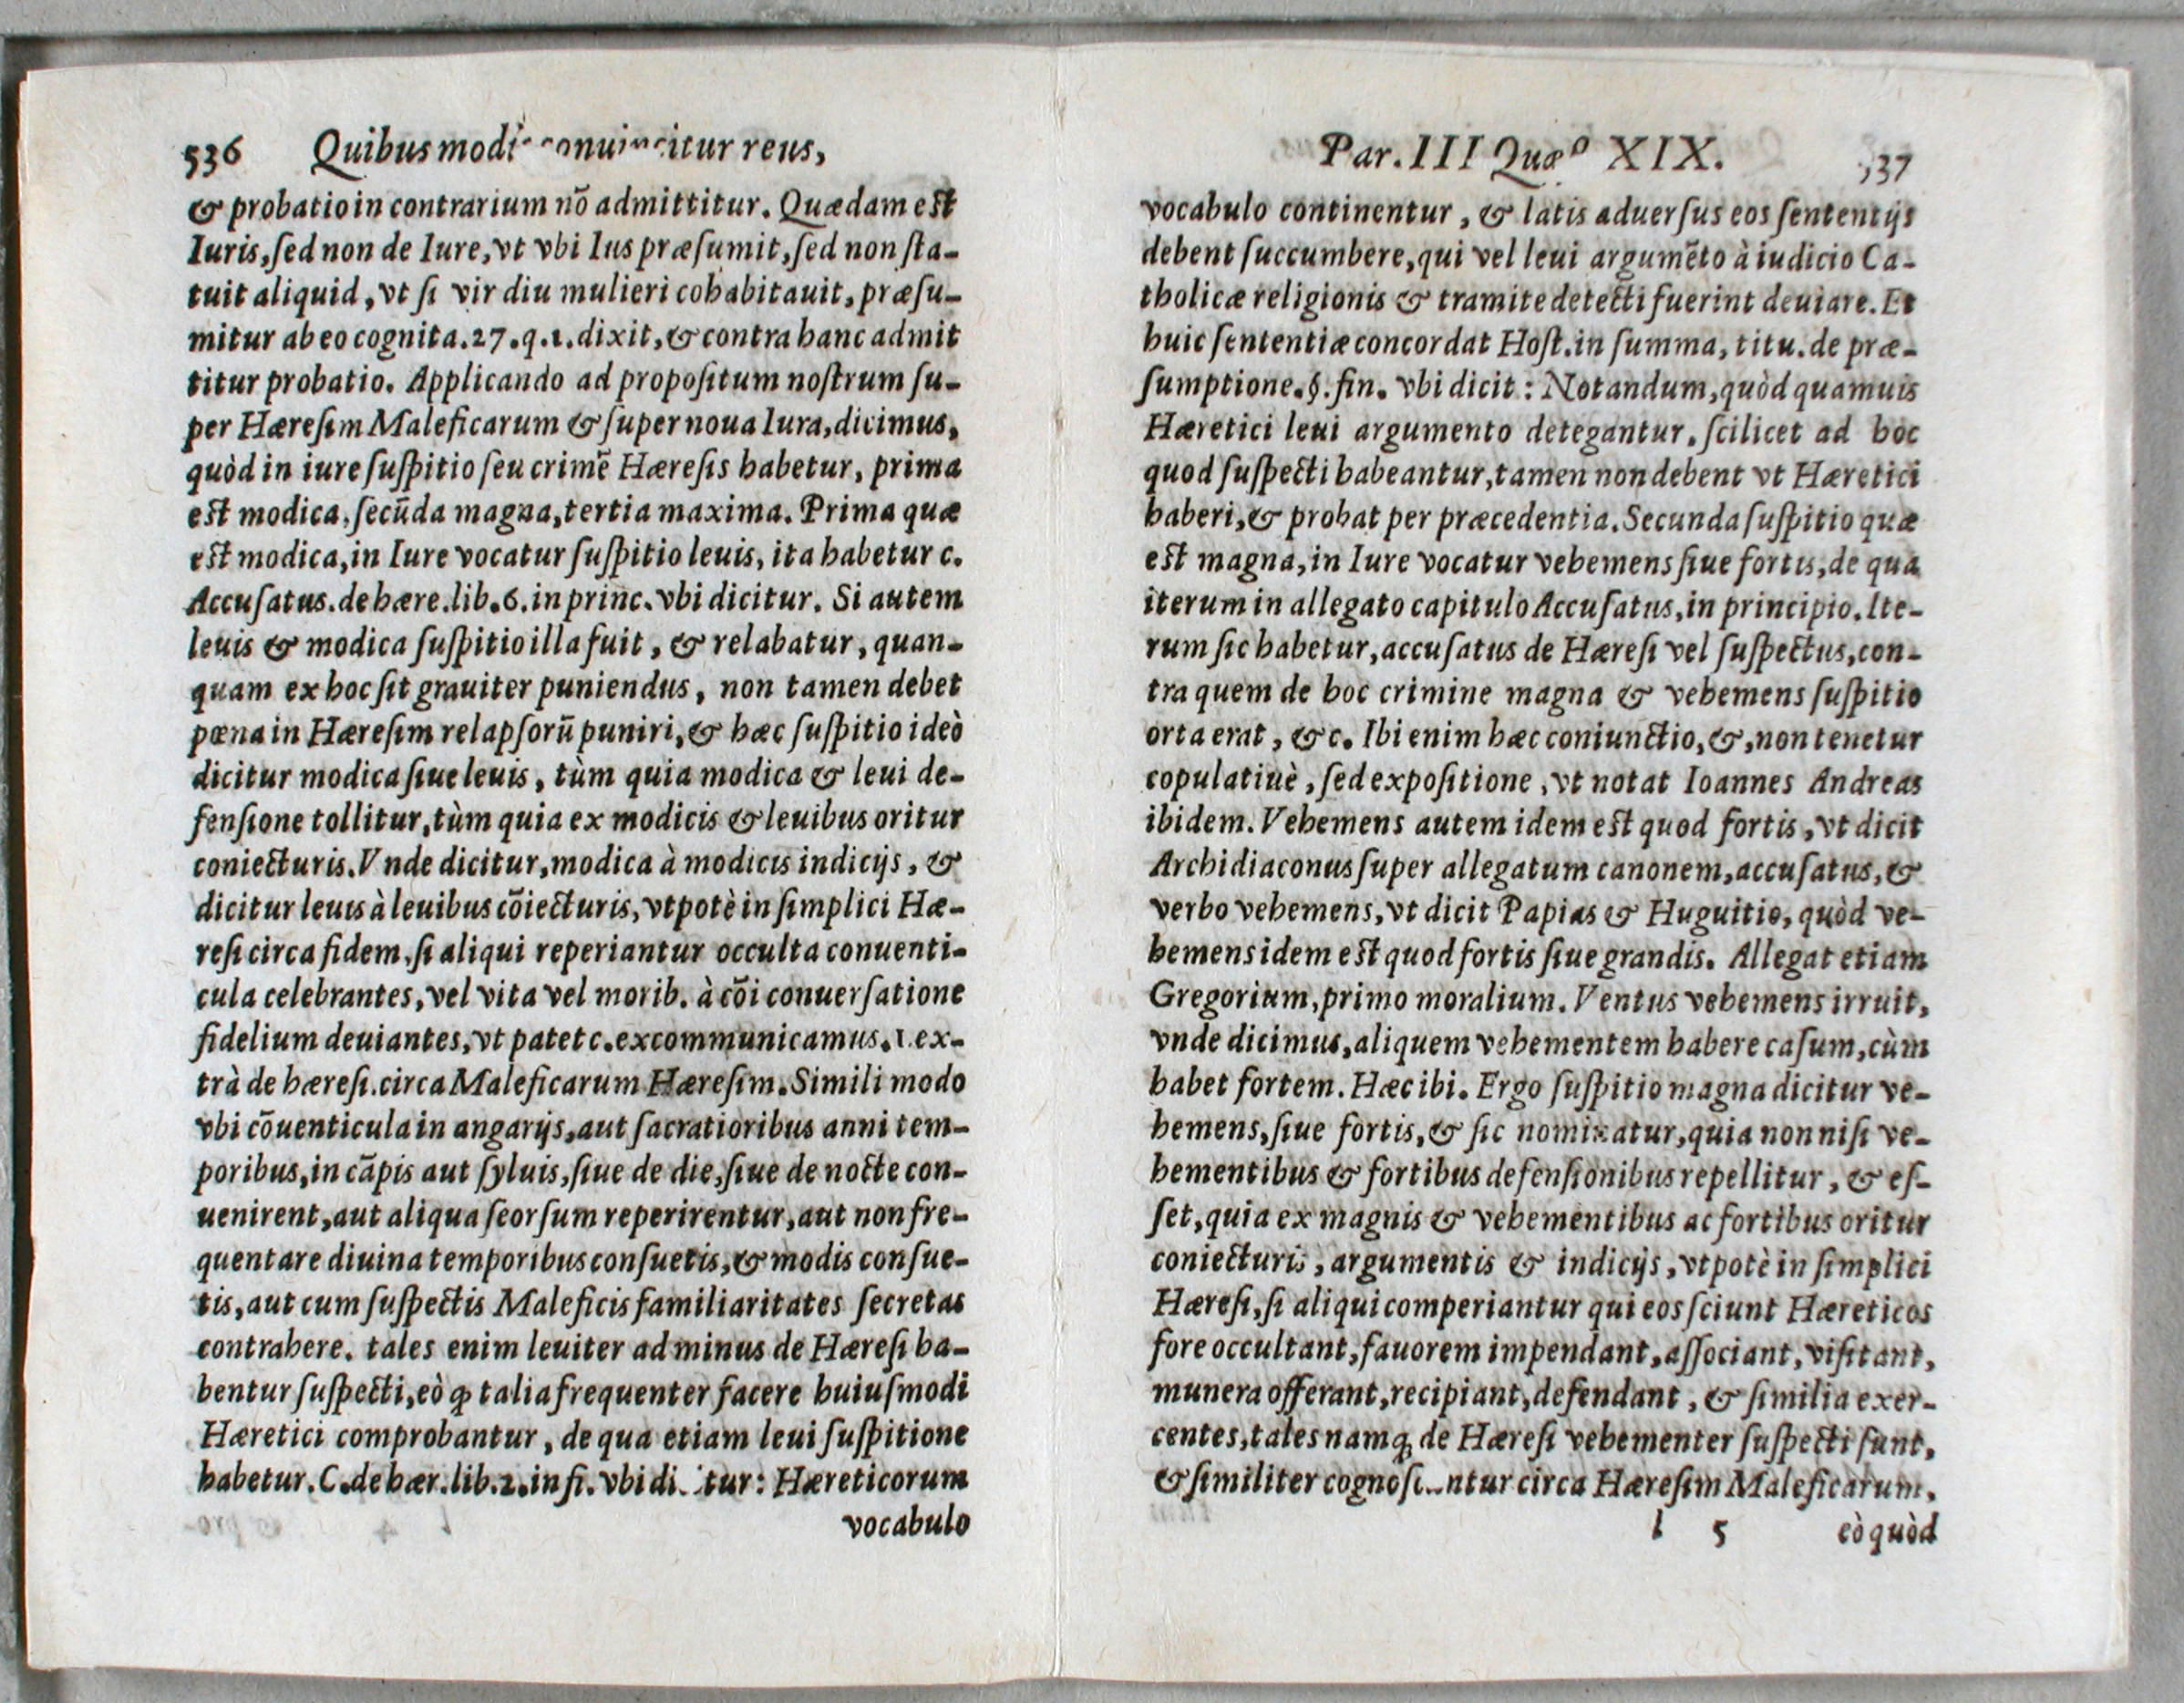 536 Quibus modi conuincitur reus,
& probatio in contrarium nõ admittitur. Quædam est
Iuris, sed non de Iure, vt vbi Ius præsumit, sed non sta-
tuit aliquid, vt si vir diu mulieri cohabitauit, præsu-
mitur ab eo cognita. 27. q. 1. dixit, & contra hanc admit
titur probatio. Applicando ad propositum nostrum su-
per Hæresim Maleficarum & super noua Iura, dicimus,
quòd in iure suspitio seu crimẽ Hæresis habetur, prima
est modica, secũda magna, tertia maxima. Prima quæ
est modica, in Iure vocatur suspitio leuis, ita habetur c.
Accusatus. de hære. lib. 6. in princ. vbi dicitur. Si autem
leuis & modica suspitio illa fuit, & relabatur, quan-
quam ex hoc sit grauiter puniendus, non tamen debet
pœna in Hæresim relapsorũ puniri, & hæc suspitio ideò
dicitur modica siue leuis, tùm quia modica & leui de-
fensione tollitur, tùm quia ex modicis & leuibus oritur
coniecturis. Vnde dicitur, modica à modicis indicijs, &
dicitur leuis à leuibus cõiecturis, vtpotè in simplici Hæ-
resi circa fidem, si aliqui reperiantur occulta conuenti-
cula celebrantes, vel vita vel morib. à cõi conuersatione
fidelium deuiantes, vt patet c. excommunicamus. 1. ex-
trà de hæresi. circa Maleficarum Hæresim. Simili modo
vbi cõuenticula in angarijs, aut sacratioribus anni tem-
poribus, in cãpis aut syluis, siue de die, siue de nocte con-
uenirent, aut aliqua seorsum reperirentur, aut non fre-
quentare diuina temporibus consuetis, & modis consue-
tis, aut cum suspectis Maleficis familiaritates secretas
contrahere. tales enim leuiter ad minus de Hæresi ha-
bentur suspecti, eò ꝙ talia frequenter facere huiusmodi
Hæretici comprobantur, de qua etiam leui suspitione
habetur. C. de hær. lib. 2. in fi. vbi dicitur: Hæreticorum
vocabulo
Par. III Quæ° XIX. 537
vocabulo continentur, & latis aduersus eos sententijs
debent succumbere, qui vel leui argumẽto à iudicio Ca-
tholicæ religionis & tramite detecti fuerint deuiare. Et
huic sententiæ concordat Host. in summa, titu. de præ-
sumptione. §. fin. vbi dicit: Notandum, quòd quamuis
Hæretici leui argumento detegantur, scilicet ad hoc
quod suspecti habeantur, tamen non debent vt Hæretici
haberi, & probat per præcedentia. Secunda suspitio quæ
est magna, in Iure vocatur vehemens siue fortis, de qua
iterum in allegato capitulo Accusatus, in principio. Ite-
rum sic habetur, accusatus de Hæresi vel suspectus, con-
tra quem de hoc crimine magna & vehemens suspitio
orta erat, &c. Ibi enim hæc coniunctio, &, non tenetur
copulatiuè, sed expositione, vt notat Ioannes Andreas
ibidem. Vehemens autem idem est quod fortis, vt dicit
Archidiaconus super allegatum canonem, accusatus, &
verbo vehemens, vt dicit Papias & Huguitio, quòd ve-
hemens idem est quod fortis siue grandis. Allegat etiam
Gregorium, primo moralium. Ventus vehemens irruit,
vnde dicimus, aliquem vehementem habere casum, cùm
habet fortem. Hæc ibi. Ergo suspitio magna dicitur ve-
hemens, siue fortis, & sic nominatur, quia non nisi ve-
hementibus & fortibus defensionibus repellitur, & es-
set, quia ex magnis & vehementibus ac fortibus oritur
coniecturis, argumentis & indicijs, vtpotè in simplici
Hæresi, si aliqui comperiantur qui eos sciunt Hæreticos
fore occultant, fauorem impendant, associant, visitant,
munera offerant, recipiant, defendant, & similia exer-
centes, tales namq́ de Hæresi vehementer suspecti sunt,
& similiter cognoscuntur circa Hæresim Maleficarum,
l 5 eò quòd